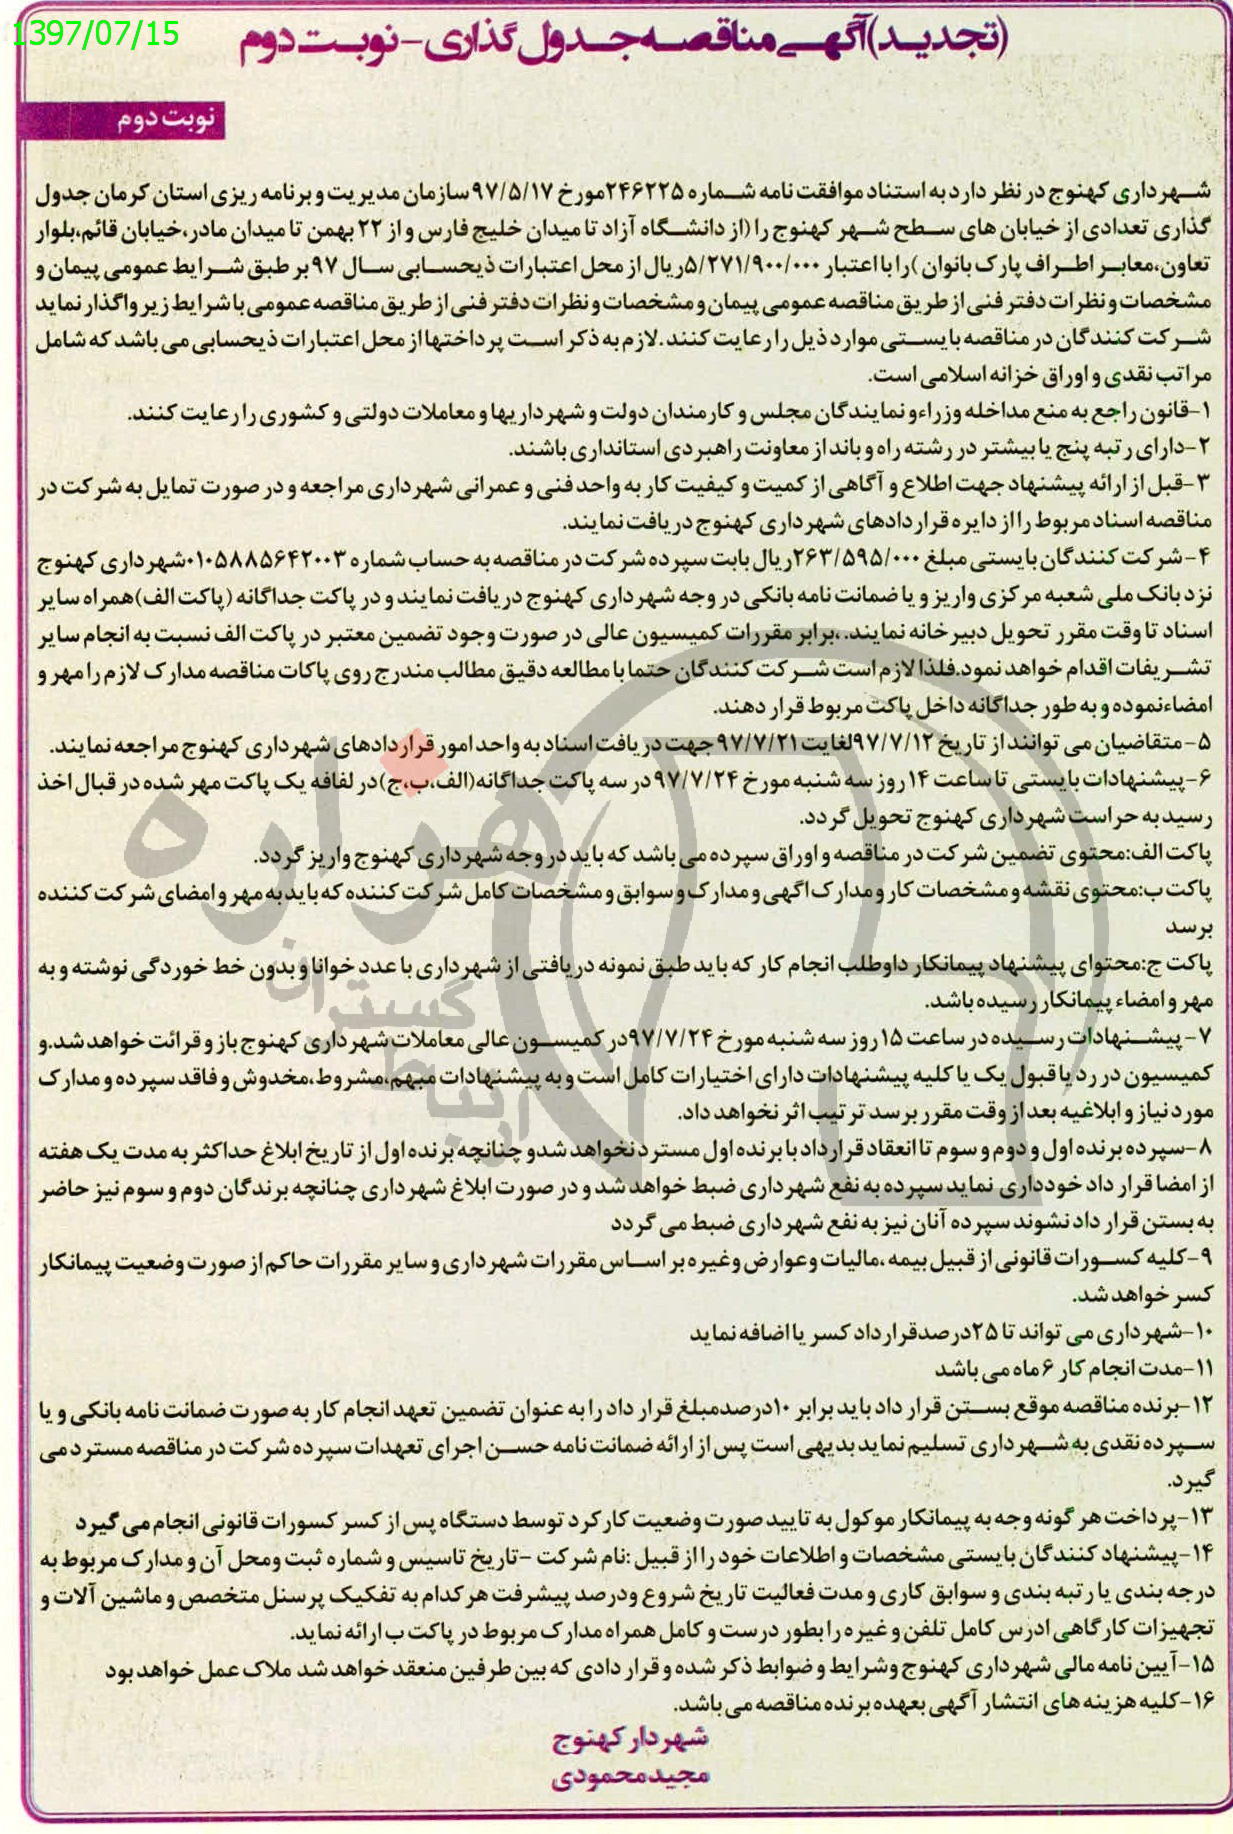 1397/07/15
(تجدید)آگهی مناقصه جدول گذاری-نوبت دوم
نوبت دوم
شهرداری کهنوج در نظر دارد به استناد موافقت نامه شماره ۲۴۶۲۲۵مورخ ۹۷/۵/۱۷سازمان مدیریت و برنامه ریزی استان کرمان جدول
گذاری تعدادی از خیابان های سطح شهر کهنوج را (از دانشگاه آزاد تا میدان خلیج فارس و از ۲۲ بهمن تا میدان مادر،خیابان قائم،بلوار
تعاون،معابر اطراف پارک بانوان )را با اعتبار ۵/۲۷۱/۹۰۰/۰۰۰ریال از محل اعتبارات ذیحسابی سال ۹۷بر طبق شرایط عمومی پیمان و
مشخصات و نظرات دفتر فنی از طریق مناقصه عمومی پیمان و مشخصات و نظرات دفتر فنی از طریق مناقصه عمومی با شرایط زیر واگذار نماید
شرکت کنندگان در مناقصه بایستی موارد ذیل را رعایت کنند.لازم به ذکر است پرداختها از محل اعتبارات ذیحسابی می باشد که شامل
مراتب نقدی و اوراق خزانه اسلامی است.
۱-قانون راجع به منع مداخله وزراءو نمایندگان مجلس و کارمندان دولت و شهرداریها و معاملات دولتی و کشوری را رعایت کنند.
۲-دارای رتبه پنج یا بیشتر در رشته راه و باند از معاونت راهبردی استانداری باشند.
۳-قبل از ارائه پیشنهاد جهت اطلاع و آگاهی از کمیت و کیفیت کار به واحد فنی و عمرانی شهرداری مراجعه و در صورت تمایل به شرکت در
مناقصه اسناد مربوط را از دایره قراردادهای شهرداری کهنوج دریافت نمایند.
۴-شرکت کنندگان بایستی مبلغ ۲۶۳/۵۹۵/۰۰۰ریال بابت سپرده شرکت در مناقصه به حساب شماره ۰۱۰۵۸۸۵۶۴۲۰۰۳شهرداری کهنوج
نزد بانک ملی شعبه مرکزی واریز و یا ضمانت نامه بانکی در وجه شهرداری کهنوج دریافت نمایند و در پاکت جداگانه (پاکت الف)همراه سایر
اسناد تا وقت مقرر تحویل دبیرخانه نمایند.،برابر مقررات کمیسیون عالی در صورت وجود تضمین معتبر در پاکت الف نسبت به انجام سایر
تشریفات اقدام خواهد نمود.فلذا لازم است شرکت کنندگان حتما با مطالعه دقیق مطالب مندرج روی پاکات مناقصه مدارک لازم را مهر و
امضاءنموده و به طور جداگانه داخل پاکت مربوط قرار دهند.
۵-متقاضیان می توانند از تاریخ ۹۷/۷/۱۲لغایت ۹۷/۷/۲۱جهت دریافت اسناد به واحد امور قراردادهای شهرداری کهنوج مراجعه نمایند.
۶-پیشنهادات بایستی تا ساعت ۱۴روز سه شنبه مورخ ۹۷/۷/۲۴در سه پاکت جداگانه(الف،ب،ج)در لفافه یک پاکت مهر شده در قبال اخذ
رسید به حراست شهرداری کهنوج تحویل گردد.
پاکت الف:محتوی تضمین شرکت در مناقصه و اوراق سپرده می باشد که باید در وجه شهرداری کهنوج واریز گردد.
پاکت ب:محتوی نقشه و مشخصات کار و مدارک اگهی و مدارک و سوابق و مشخصات کامل شرکت کننده که باید به مهر و امضای شرکت کننده
برسد
پاکت ج:محتوای پیشنهاد پیمانکار داوطلب انجام کار که باید طبق نمونه دریافتی از شهرداری با عدد خوانا و بدون خط خوردگی نوشته و به
مهر و امضاء پیمانکار رسیده باشد.
۷-پیشنهادات رسیده در ساعت ۱۵روز سه شنبه مورخ ۹۷/۷/۲۴در کمیسون عالی معاملات شهرداری کهنوج باز و قرائت خواهد شد.و
کمیسیون در رد یا قبول یک یا کلیه پیشنهادات دارای اختیارات کامل است و به پیشنهادات مبهم،مشروط،مخدوش و فاقد سپرده و مدارک
مورد نیاز و ابلاغیه بعد از وقت مقرر برسد ترتیب اثر نخواهد داد.
۸-سپرده برنده اول و دوم و سوم تا انعقاد قرارداد با برنده اول مسترد نخواهد شدو چنانچه برنده اول از تاریخ ابلاغ حداکثر به مدت یک هفته
از امضا قرار داد خودداری نماید سپرده به نفع شهرداری ضبط خواهد شد و در صورت ابلاغ شهرداری چنانچه برندگان دوم و سوم نیز حاضر
به بستن قرار داد نشوند سپرده آنان نیز به نفع شهرداری ضبط می گردد
۹-کلیه کسورات قانونی از قبیل بیمه ،مالیات وعوارض وغیره بر اساس مقررات شهرداری و سایر مقررات حاکم از صورت وضعیت پیمانکار
کسر خواهد شد.
۱۰-شهرداری می تواند تا ۲۵درصدقرارداد کسر یا اضافه نماید
۱۱-مدت انجام کار ۶ماه می باشد
۱۲-برنده مناقصه موقع بستن قرار داد باید برابر ۱۰درصدمبلغ قرار داد را به عنوان تضمین تعهد انجام کار به صورت ضمانت نامه بانکی و یا
سپرده نقدی به شهرداری تسلیم نماید بدیهی است پس از ارائه ضمانت نامه حسن اجرای تعهدات سپرده شرکت در مناقصه مسترد می
گیرد.
۱۳-پرداخت هر گونه وجه به پیمانکار موکول به تایید صورت وضعیت کارکرد توسط دستگاه پس از کسر کسورات قانونی انجام می گیرد
۱۴-پیشنهاد کنندگان بایستی مشخصات و اطلاعات خود را از قبیل :نام شرکت -تاریخ تاسیس و شماره ثبت ومحل آن و مدارک مربوط به
درجه بندی یا رتبه بندی و سوابق کاری و مدت فعالیت تاریخ شروع ودرصد پیشرفت هر کدام به تفکیک پرسنل متخصص و ماشین آلات و
تجهیزات کارگاهی ادرس کامل تلفن و غیره را بطور درست و کامل همراه مدارک مربوط در پاکت ب ارائه نماید.
۱۵-آیین نامه مالی شهرداری کهنوج وشرایط و ضوابط ذکر شده و قرار دادی که بین طرفین منعقد خواهد شد ملاک عمل خواهد بود
۱۶-کلیه هزینه های انتشار آگهی بعهده برنده مناقصه می باشد.
شهردار کهنوج
مجید محمودی
هزاره
گستران
ارتباط